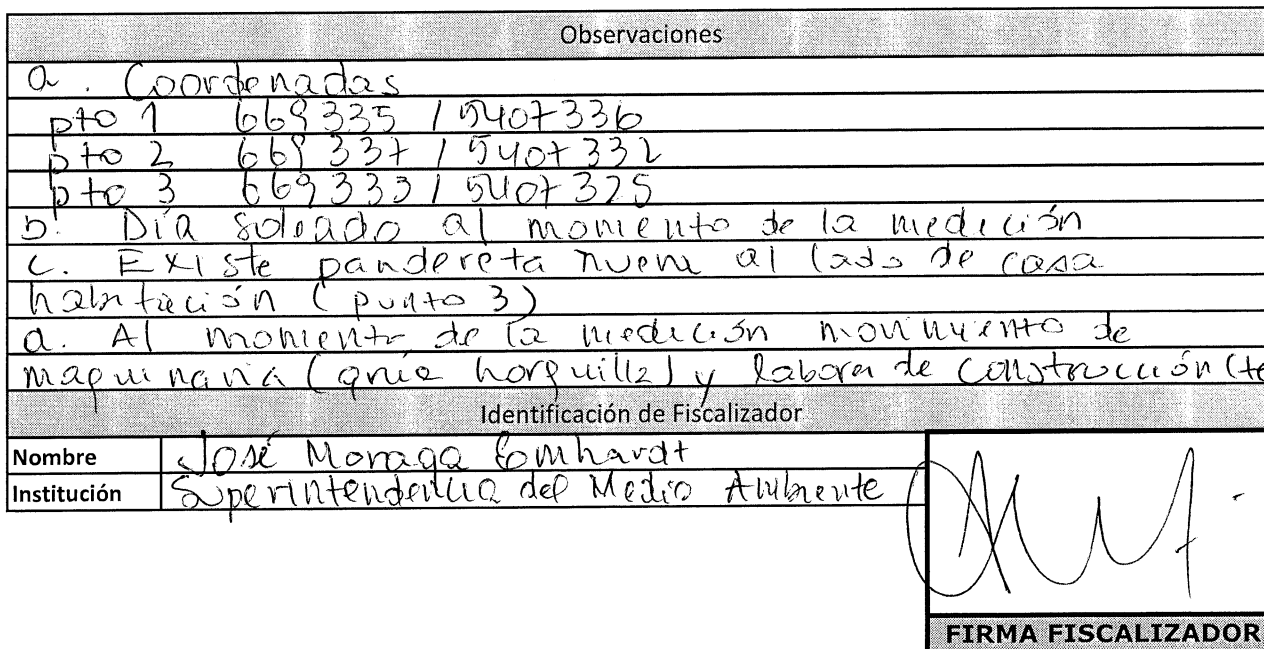 Observaciones
a. Coordenadas
pto 1 669335 / 5407336
pto 2 669337 / 5407332
pto 3 669333 / 5407325
b. Día soleado al momento de la medición
c. Existe pandereta nueva al lado de casa
habitación (punto 3)
a. Al momento de la medición movimiento de
maquinaria (grúa horquilla) y labores de construcción (te
Identificación de Fiscalizador
Nombre José Moraga
Institución Superintendencia del Medio Ambiente
FIRMA FISCALIZADOR